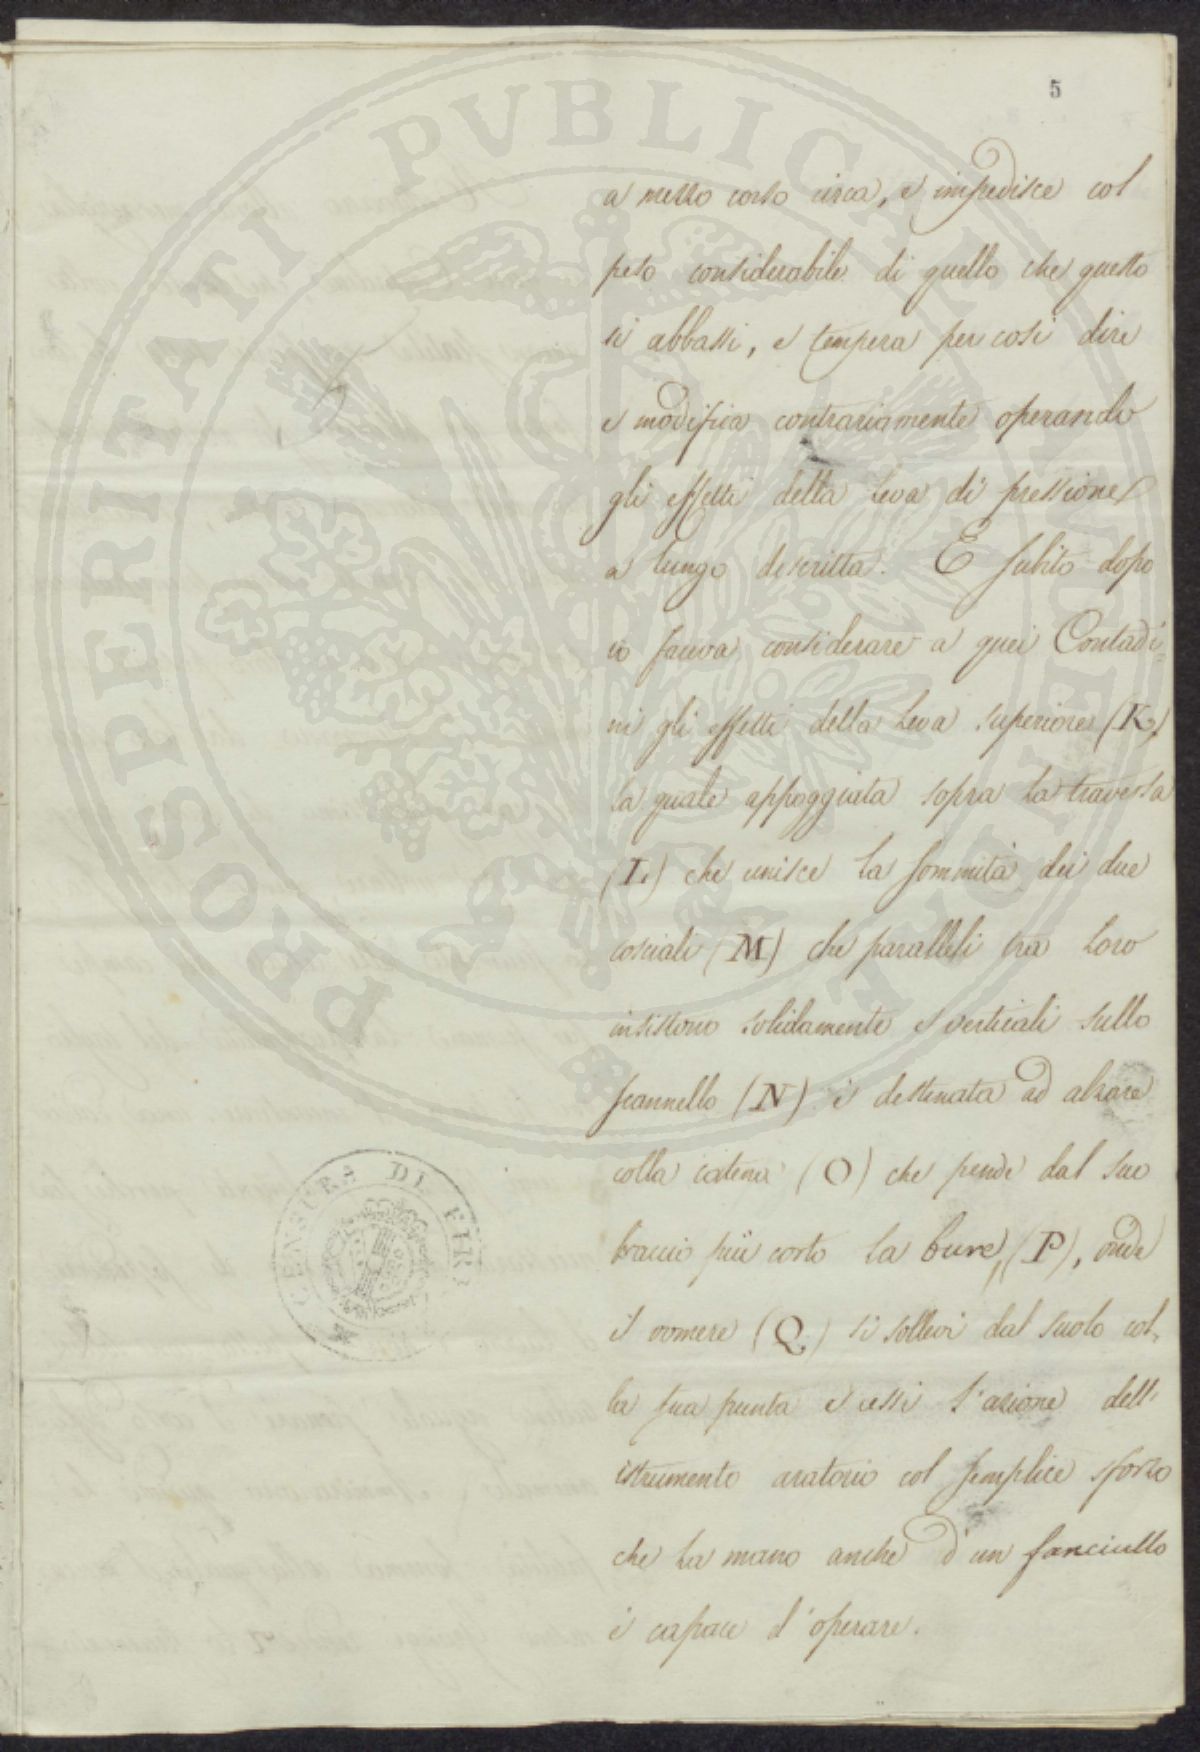 5
a mezzo corso circa, e impedisce col
peso considerabile di quello che questo
si abbassi, e tempera per cosi dire
e modifica contrariamente operando
gli effetti della leva di pressione
a lungo descritta. E subito dopo
io faceva considerare a quei Contadi=
ni gli effetti della leva superiore (K)
la quale appoggiata sopra la traversa
(L) che unisce la sommità dei due
cosciali (M) che paralleli tra loro
insistono solidamente e verticali sullo
scannello (N) è destinata ad alzare
colla catena (O) che pende dal suo
braccio più corto la bure, (P), onde
il vomere (Q) si sollevi dal suolo col=
la sua punta e cessi l'azione dell'
istrumento aratorio col semplice sforzo
che la mano anche d'un fanciullo
è capace d'operare.
PROSPERITATI PVBLICAE AVGENDAE
CENSURA DI FIR